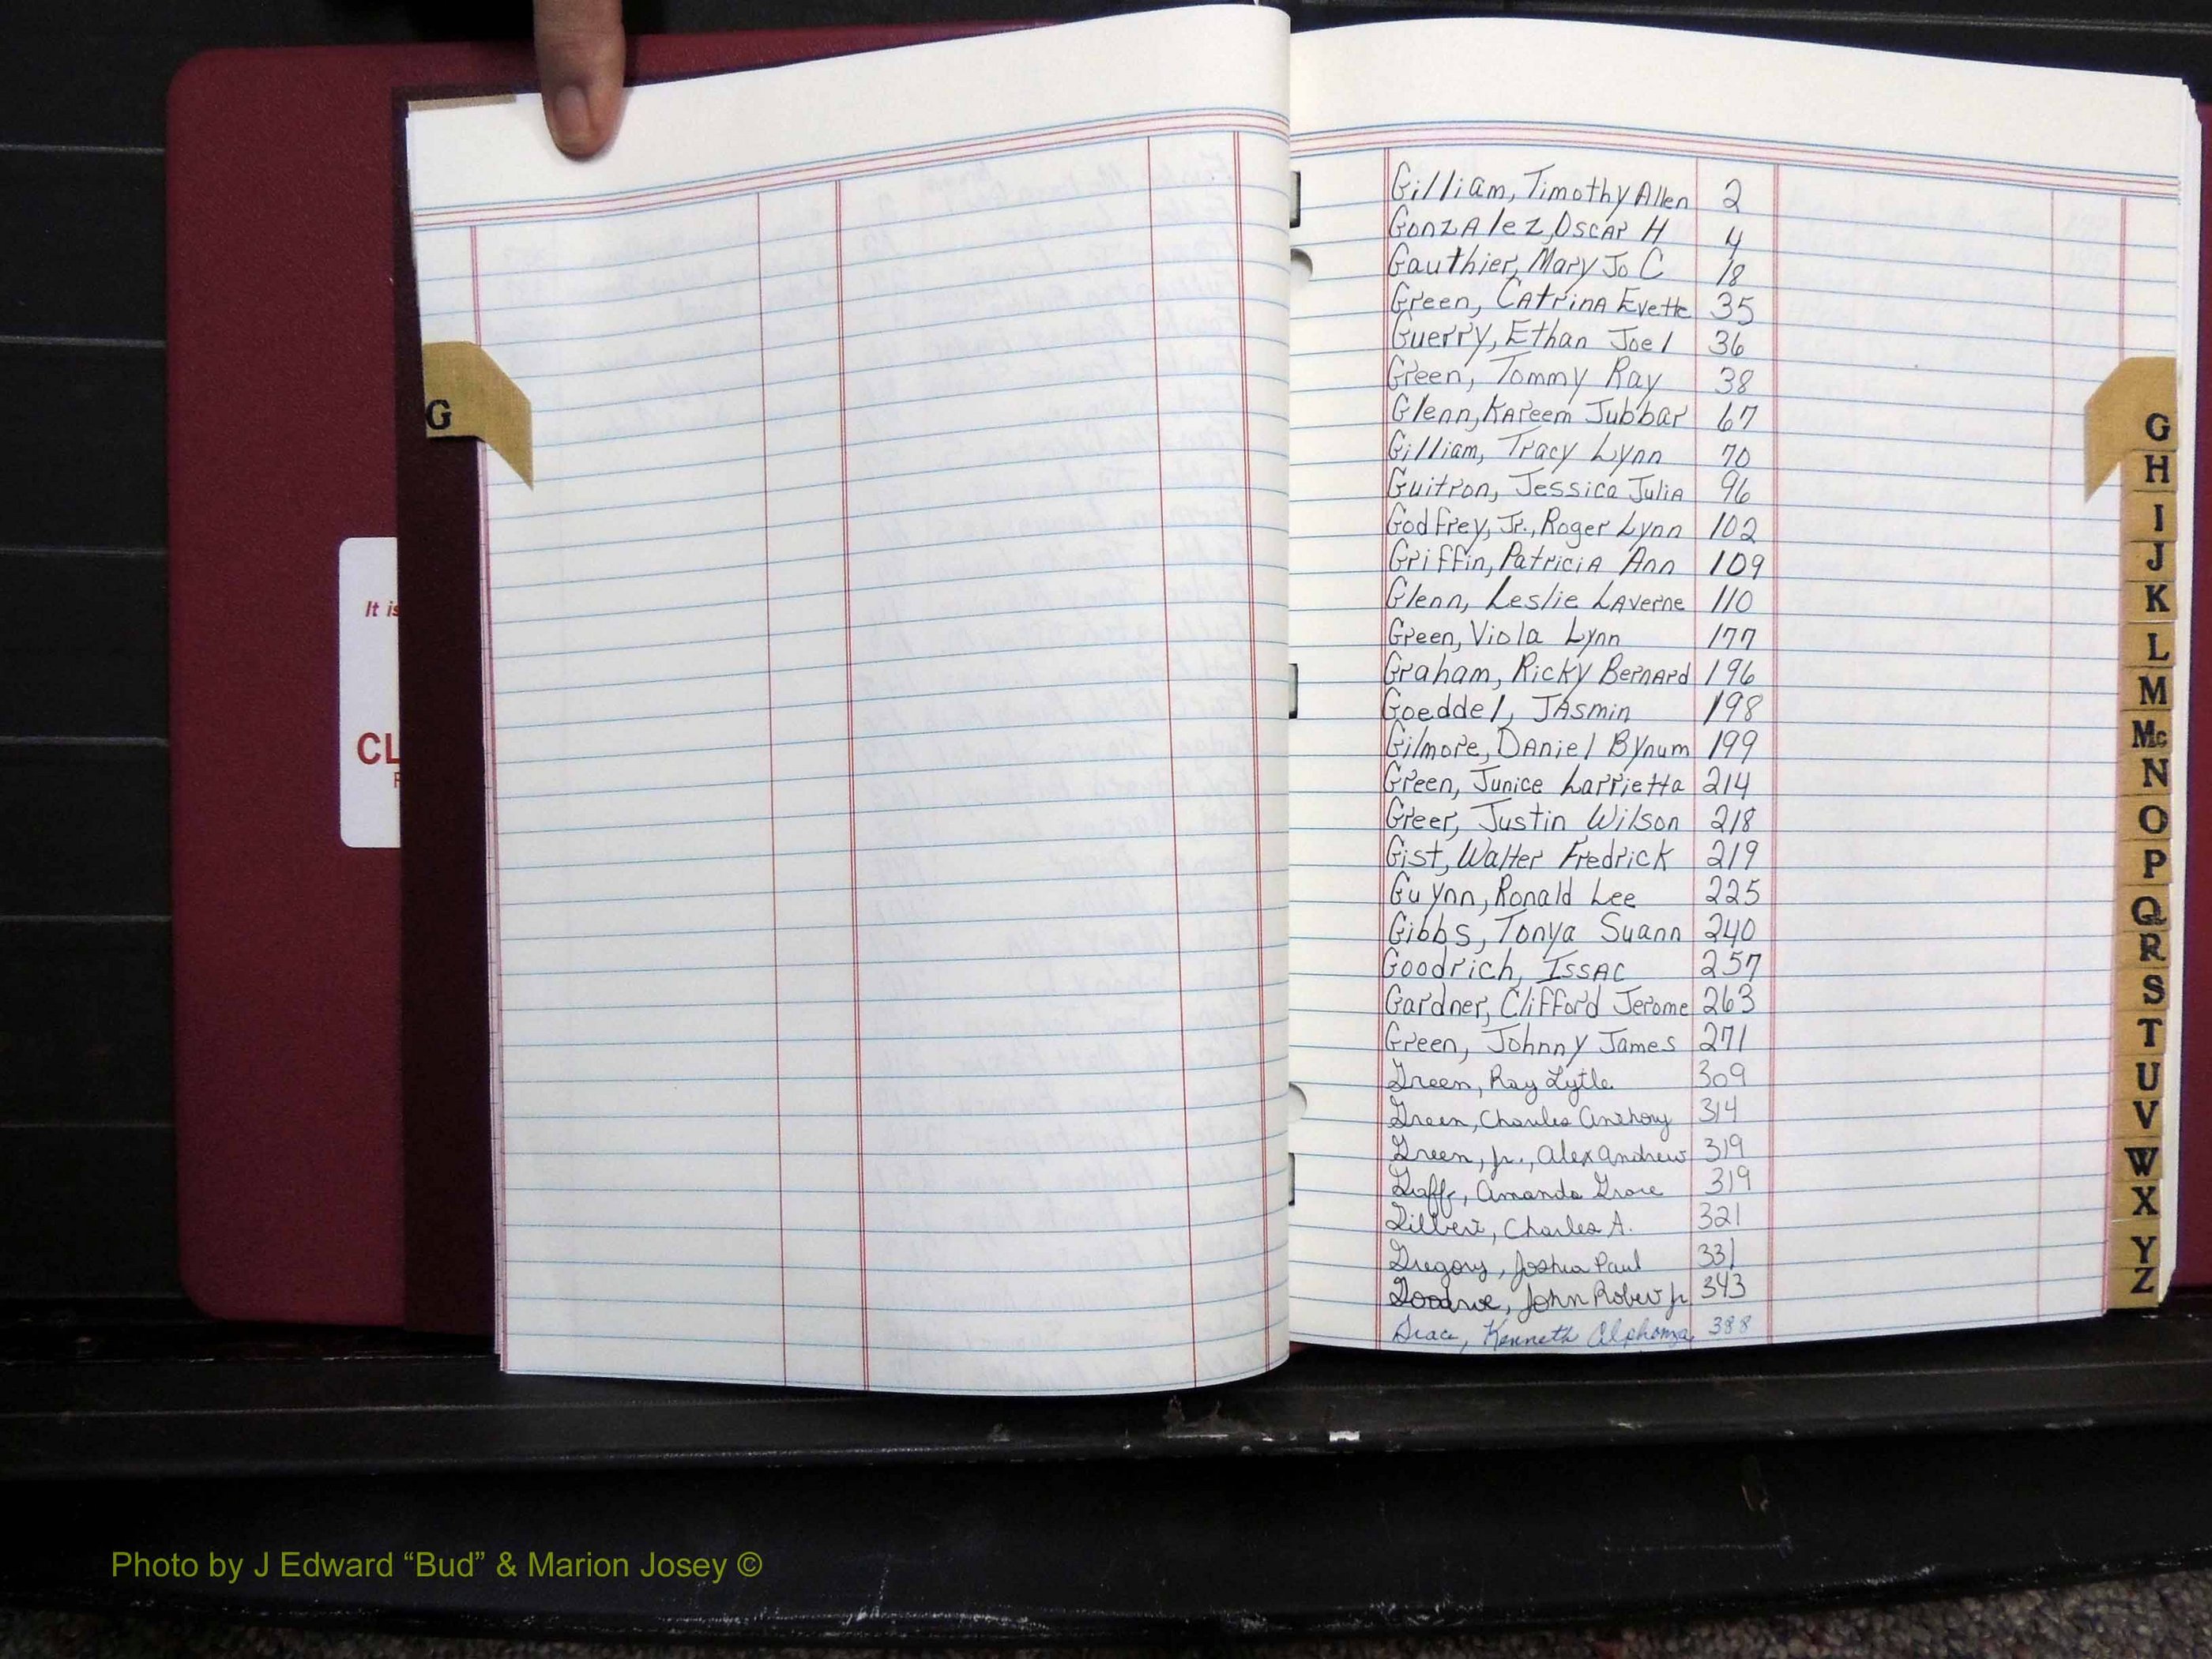 G
It is
CL
Gilliam, Timothy Allen 2
Gonzalez, Oscar H 4
Gauthier, Mary Jo C 18
Green, Catrina Evette 35
Guerry, Ethan Joel 36
Green, Tommy Ray 38
Glenn, Kareem Jubbar 67
Gilliam, Tracy Lynn 70
Guitron, Jessica Julia 96
Godfrey, Jr., Roger Lynn 102
Griffin, Patricia Ann 109
Glenn, Leslie Laverne 110
Green, Viola Lynn 177
Graham, Ricky Bernard 196
Goeddel, Jasmin 198
Gilmore, Daniel Bynum 199
Green, Junice Larrietta 214
Greer, Justin Wilson 218
Gist, Walter Fredrick 219
Guynn, Ronald Lee 225
Gibbs, Tonya Suann 240
Goodrich, Issac 257
Gardner, Clifford Jerome 263
Green, Johnny James 271
Green, Ray Lytle 309
Green, Charles Anthony 314
Green, Jr., Alex Andrew 319
Amanda 319
Gilbert, Charles A. 321
Gregory, Joshua Paul 331
John Robert Jr 343
Kenneth Alphonza 388
G
H
I
J
K
L
M
Mc
N
O
P
Q
R
S
T
U
V
W
X
Y
Z
Photo by J Edward “Bud” & Marion Josey ©